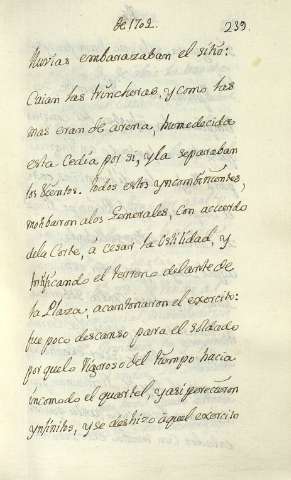 de 1702. 239.
lluvias embarazaban el sitio:
Caian las trincheras, y como las
mas eran de arena, humedecida
esta cedia por si, y la separaban
los Vientos. todos estos ynconbenientes,
motibaron a los Generales, con acuerdo
dela Corte, á cesar la ostilidad, y
fortificando el terreno delante de
la Plaza, acantonaron el exercito:
fue poco descanso para el soldado
por que lo rigoroso del tiempo hacia
incomodo el quartel, y asi perecieron
ynfinitos, y se deshizo aquel exercito